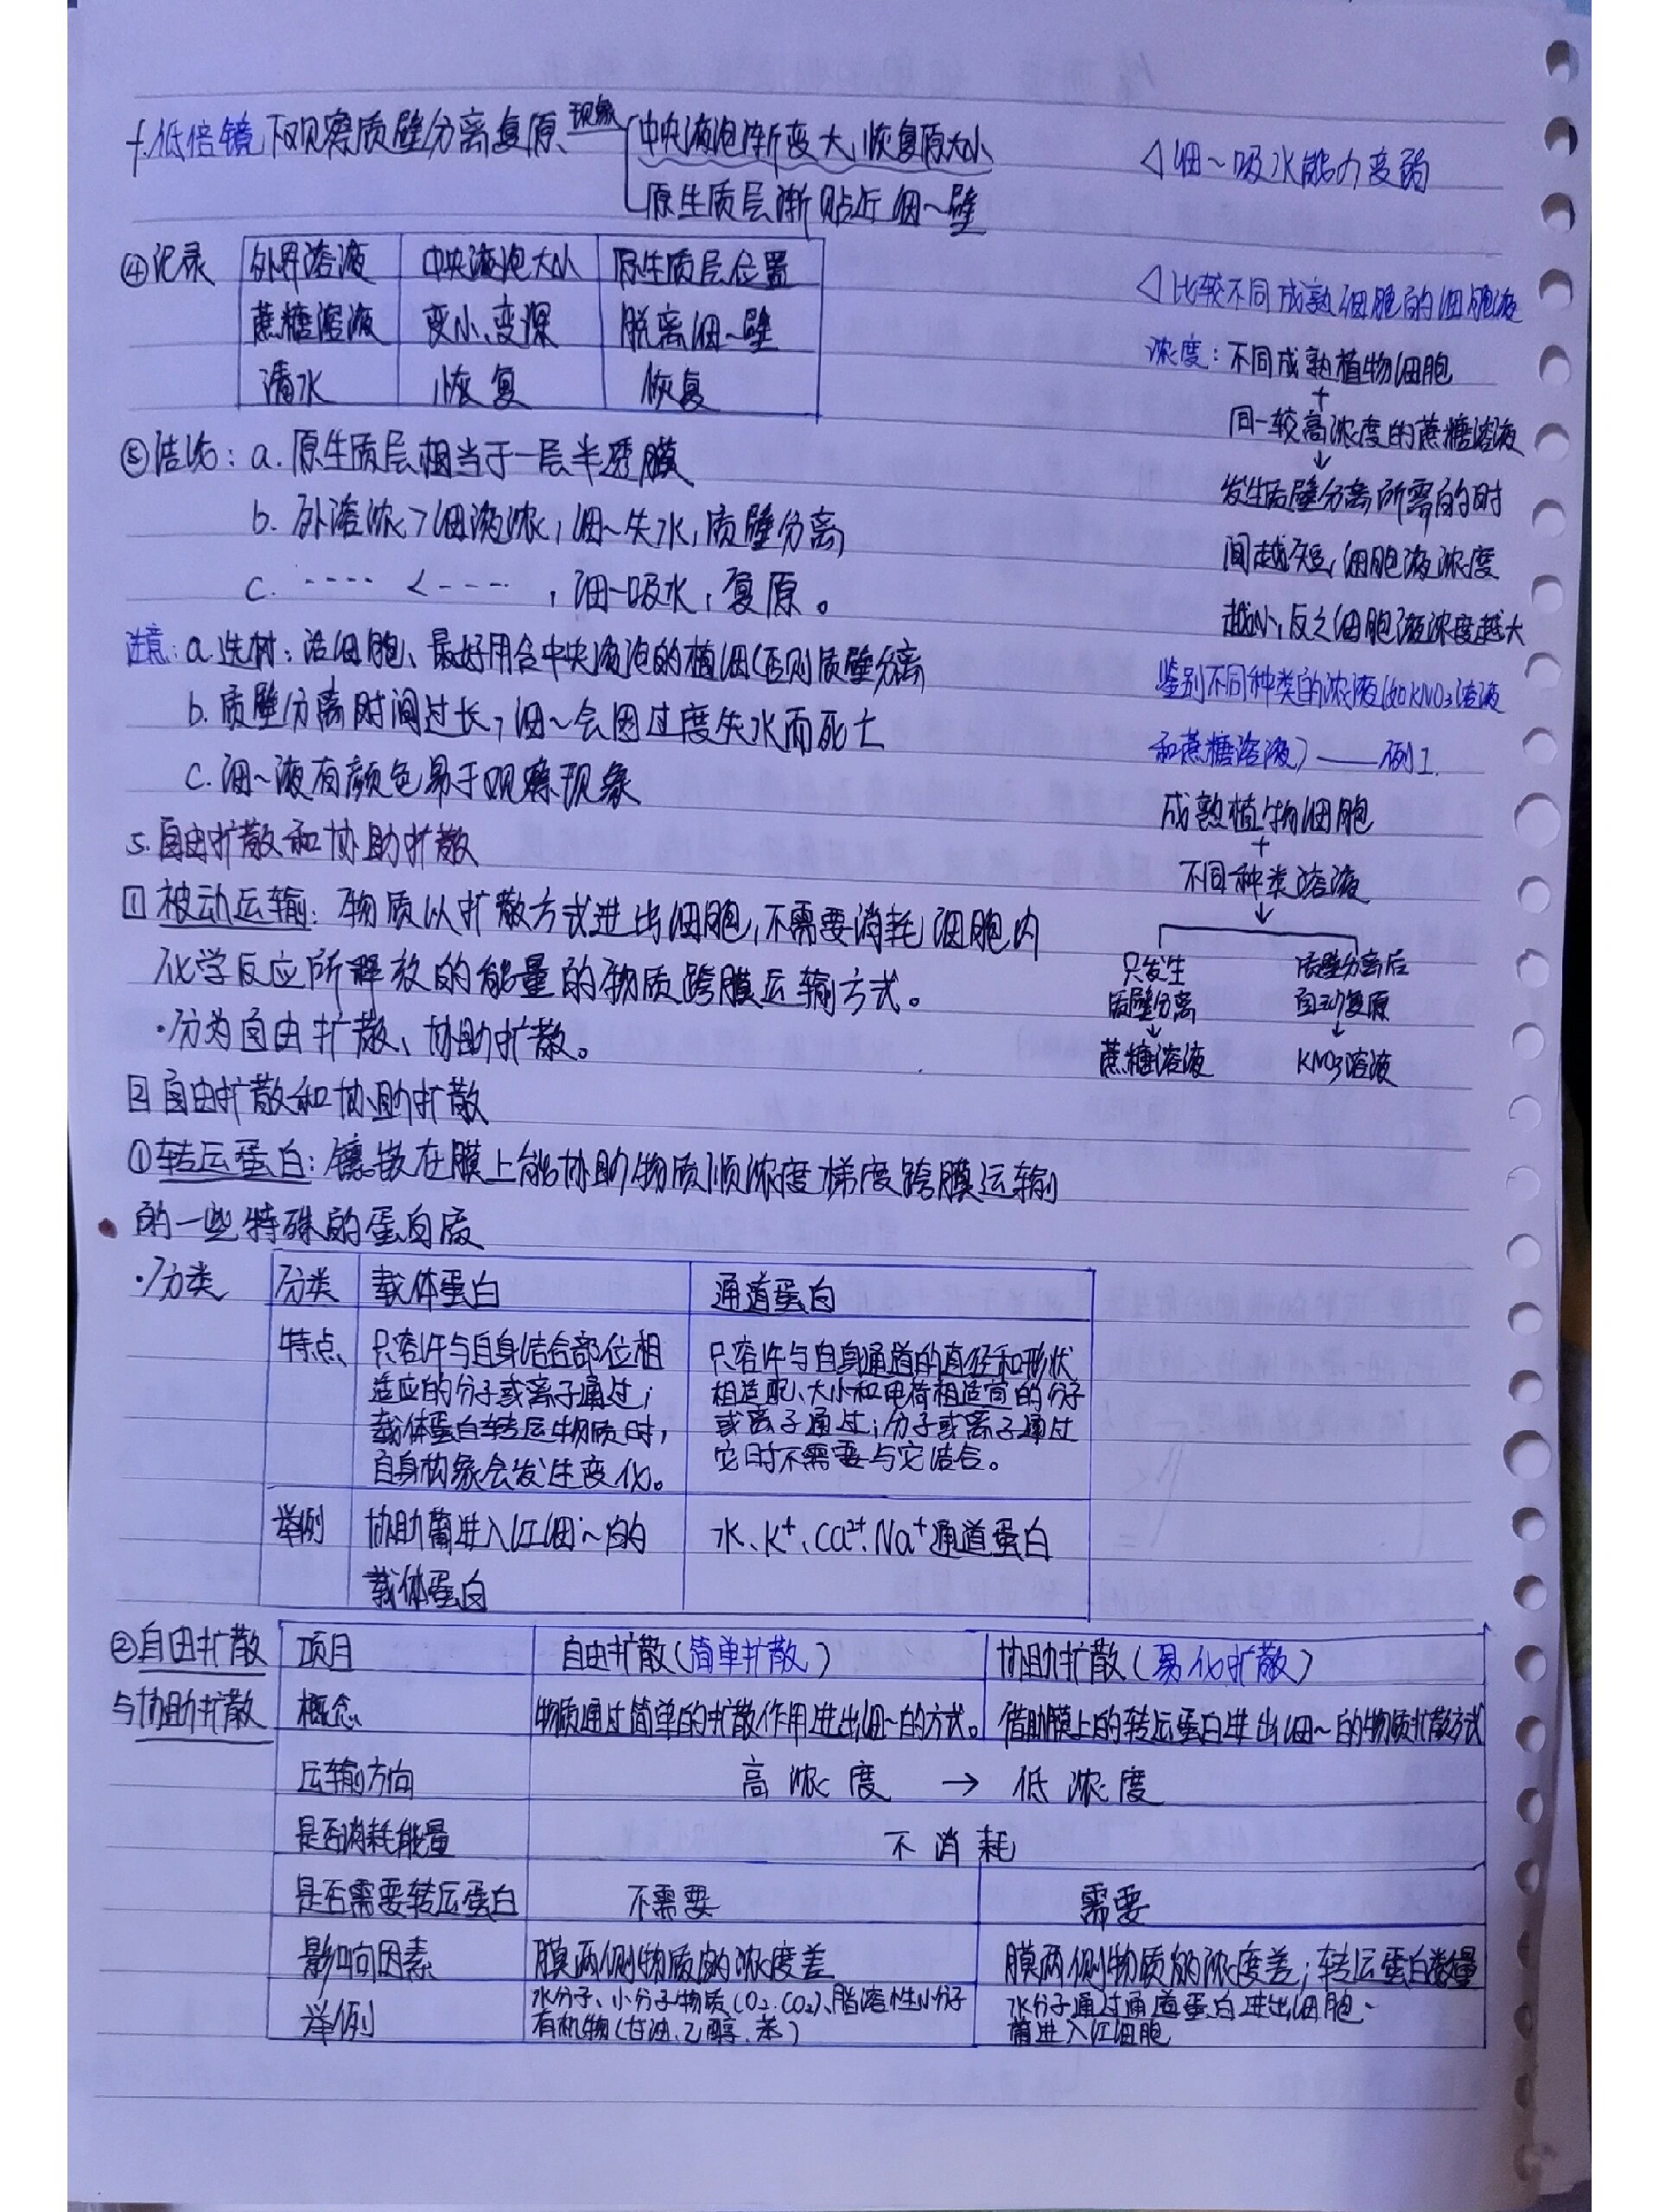 f.低倍镜下观察质壁分离复原 现象 中央液泡渐变大,恢复原大小
原生质层渐贴近细~壁
◁细~吸水能力变弱
④记录
外界溶液 中央液泡大小 原生质层位置
蔗糖溶液 变小、变深 脱离细~壁
清水 恢复 恢复
⑤结论: a.原生质层相当于一层半透膜
b.外溶浓>细液浓,细~失水,质壁分离
c. ···· < ---- ,细~吸水,复原。
注意: a.选材:活细胞、最好用含中央液泡的植细(否则质壁分离
b.质壁分离时间过长,细~会因过度失水而死亡
c.细~液有颜色易于观察现象
5.自由扩散和协助扩散
1 被动运输:物质以扩散方式进出细胞,不需要消耗细胞内
化学反应所释放的能量的物质跨膜运输方式。
·分为自由扩散、协助扩散。
2 自由扩散和协助扩散
①转运蛋白:镶嵌在膜上能协助物质顺浓度梯度跨膜运输
的一些特殊的蛋白质
◁比较不同成熟细胞的细胞液
浓度:不同成熟植物细胞
+
同一较高浓度的蔗糖溶液
↓
发生质壁分离所需的时
间越短,细胞液浓度
越小,反之细胞液浓度越大
鉴别不同种类的浓液(如KNO3溶液
和蔗糖溶液)——例1.
成熟植物细胞
+
不同种类溶液
↓
只发生 质壁分离后
质壁分离 自动复原
↓ ↓
蔗糖溶液 KNO3溶液
·分类
分类 载体蛋白 通道蛋白
特点 只容许与自身结合部位相 只容许与自身通道的直径和形状
适应的分子或离子通过; 相适配、大小和电荷相适宜的分子
载体蛋白转运物质时, 或离子通过;分子或离子通过
自身构象会发生变化。 它时不需要与它结合。
举例 协助葡进入红细~的 水、K⁺、Ca²⁺、Na⁺通道蛋白
载体蛋白
②自由扩散
与协助扩散
项目 自由扩散(简单扩散) 协助扩散(易化扩散)
概念 物质通过简单的扩散作用进出细~的方式。 借助膜上的转运蛋白进出细~的物质扩散方式
运输方向 高浓度 → 低浓度
是否消耗能量 不消耗
是否需要转运蛋白 不需要 需要
影响因素 膜两侧物质的浓度差 膜两侧物质的浓度差;转运蛋白数量
举例 水分子、小分子物质(O2.CO2)、脂溶性小分子 水分子通过通道蛋白进出细胞、
有机物(甘油、乙醇、苯) 葡进入红细胞